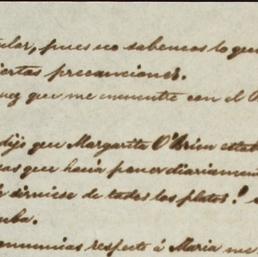 pues no sabemos lo que
ciertas precauciones.
vez que me encuentre con el
dijo que Margarita O'Brien estab
que hacia poner diariamen
servirse de todos los platos!
respecto á Maria me